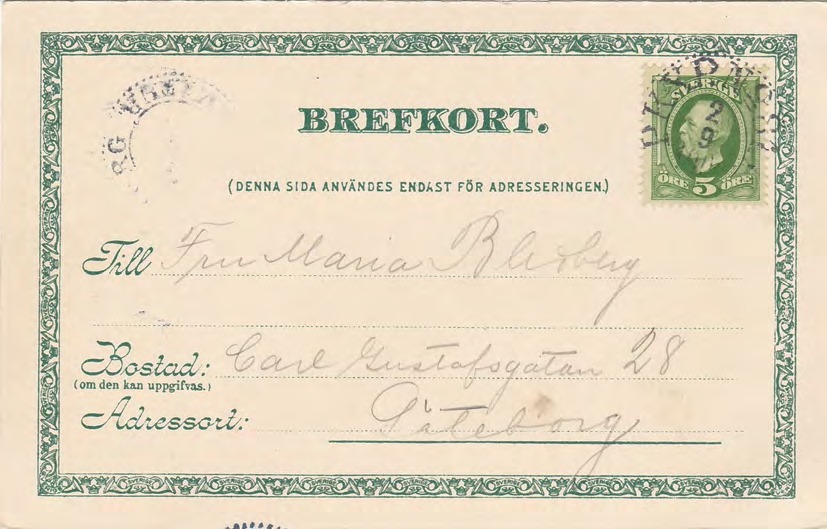 BREFKORT.
(DENNA SIDA ANVÄNDES ENDAST FÖR ADRESSERINGEN.)
SVERIGE
2
9
ÖRE 5 ÖRE
Till Fru Maria
Bostad: Carl Gustafsgatan 28
(om den kan uppgifvas.)
Adressort: Göteborg